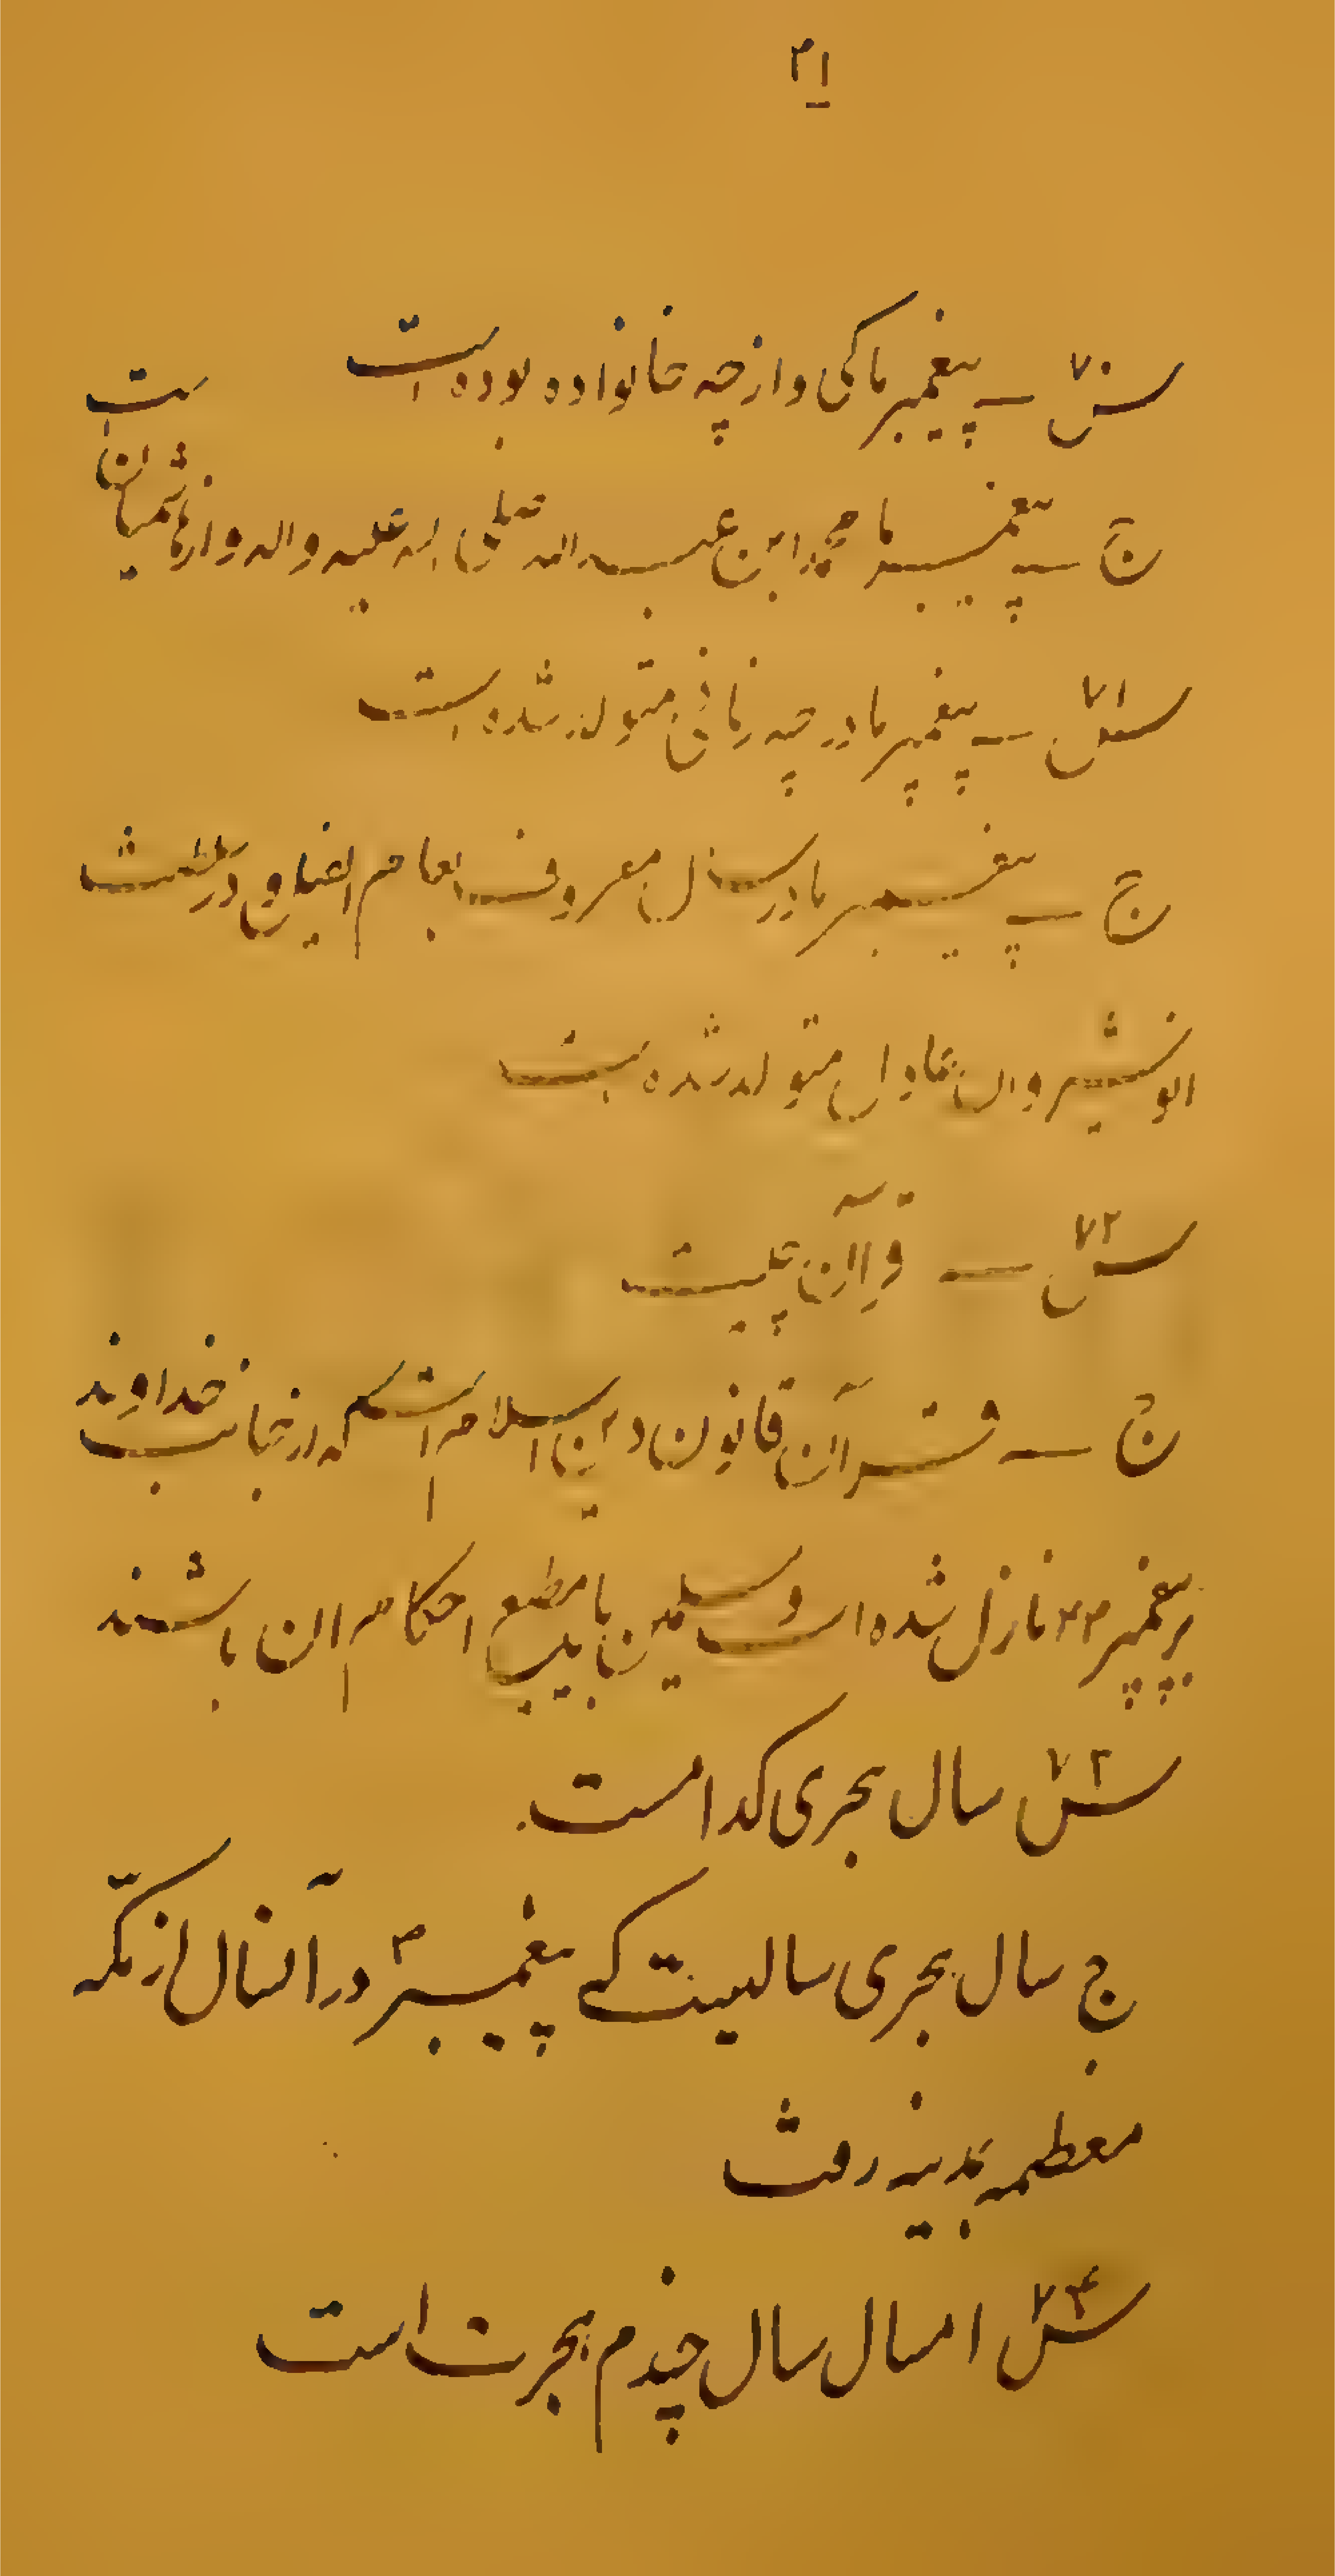 ۲۱
س۷۰ ـ پیغمبر ما کی و از چه خانواده بوده است
ج ـ پیغمبر ما محمد ابن عبدالله صلی الله علیه واله و از هاشمیان است
س۷۱ ـ پیغمبر ما در چه زمانی متولد شده است
ج ـ پیغمبر ما در سال معروف بعام الفیل و در سلطنت
انوشیروان عادل متولد شده است
س۷۲ ـ قرآن چیست
ج ـ قرآن قانون دین اسلام است که از جانب خداوند
بر پیغمبر نازل شده است و مسلمین باید مطیع احکام ان باشند
س۷۳ سال هجری کدامست
ج سال هجری سالیست که پیغمبر ص در آنسال از مکّه
معظمه بمدینه رفت
س۷۴ امسال سال چندم هجرت است